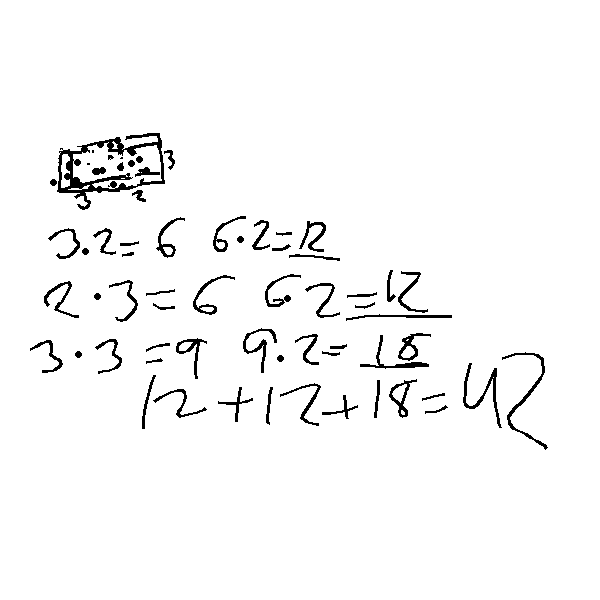 3
3 2
3·2=6 6·2=12
2·3=6 6·2=12
3·3=9 9·2=18
12+12+18=42